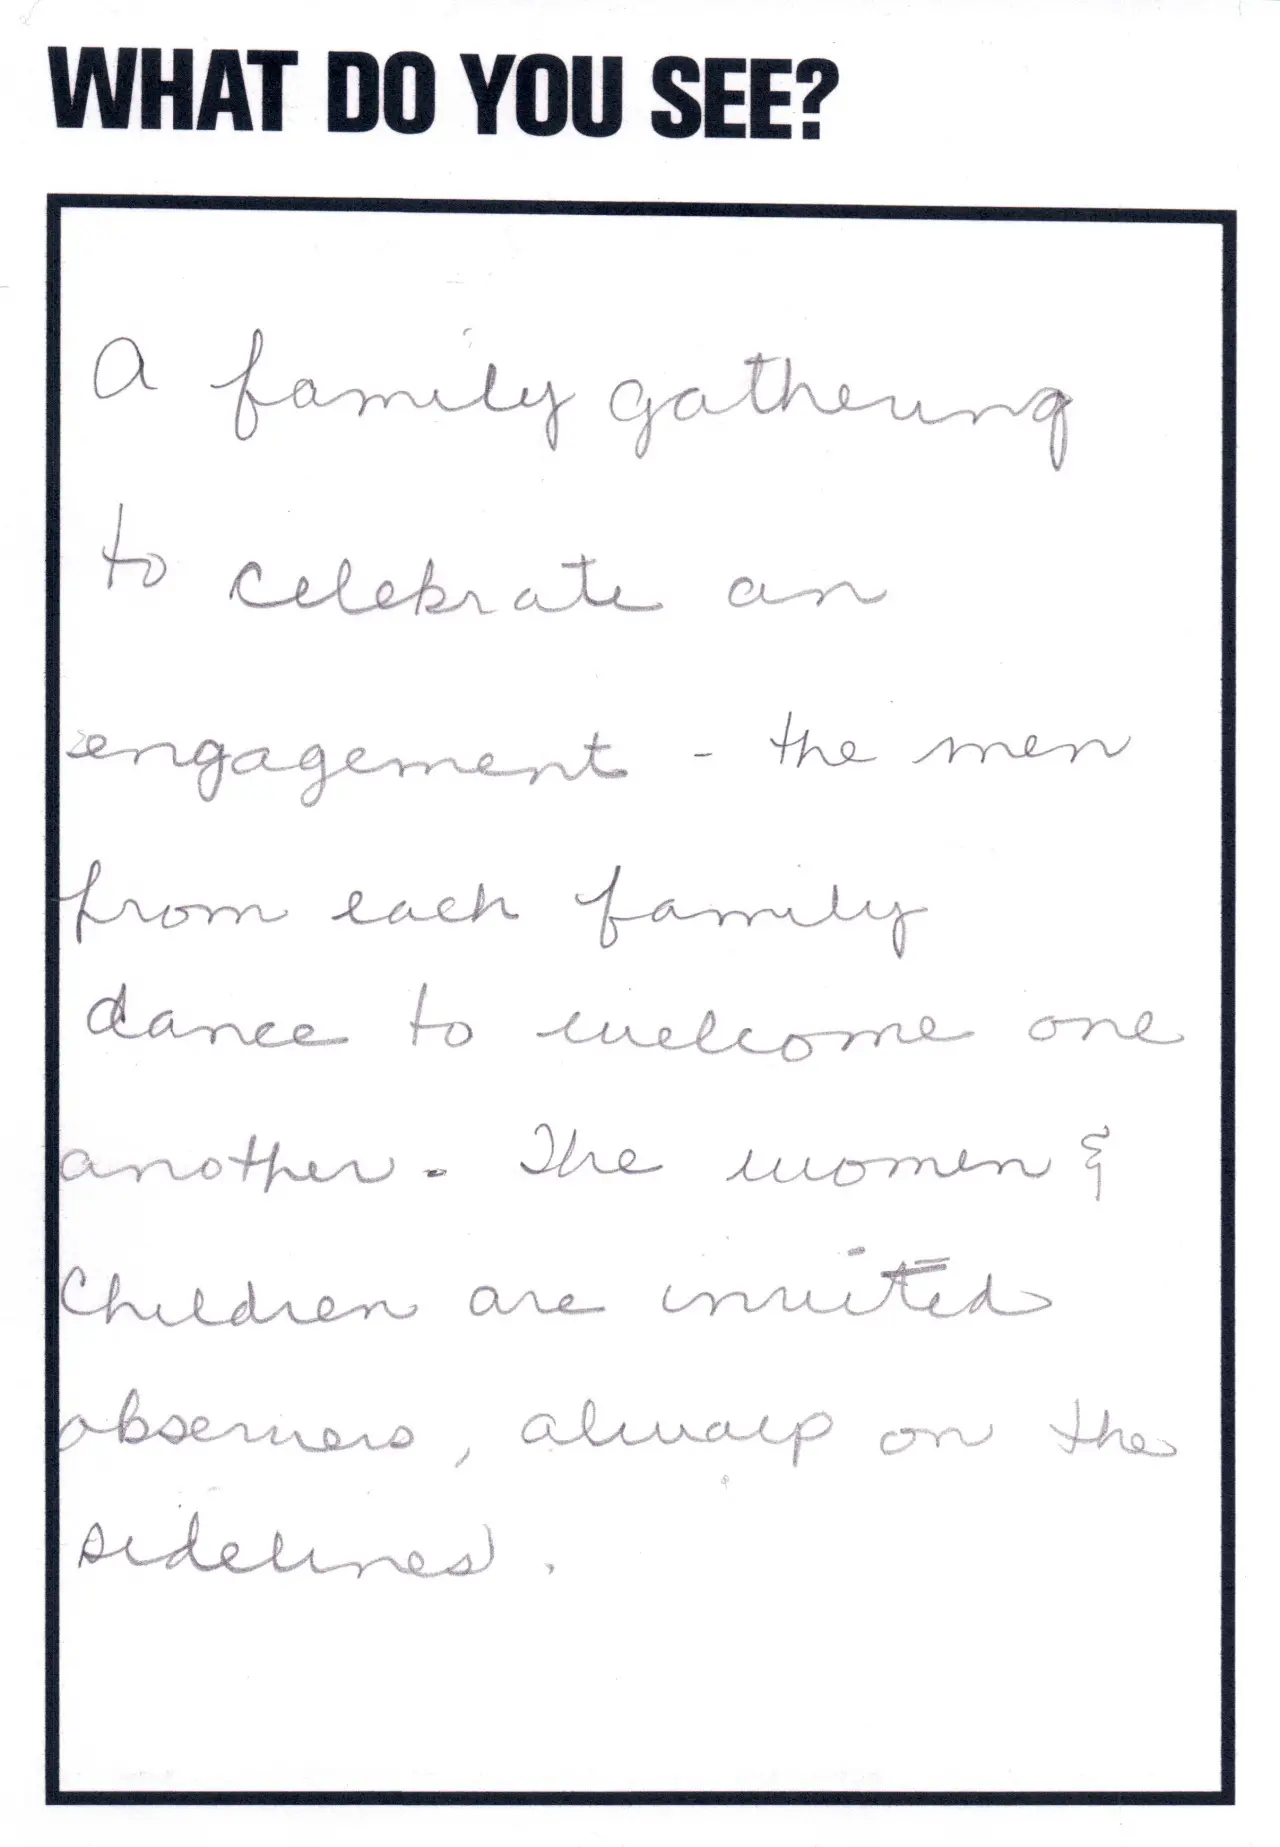 WHAT DO YOU SEE?
A family gathering
to celebrate an
engagement - the men
from each family
dance to welcome one
another. The women &
Children are invited
observers, always on the
sidelines.